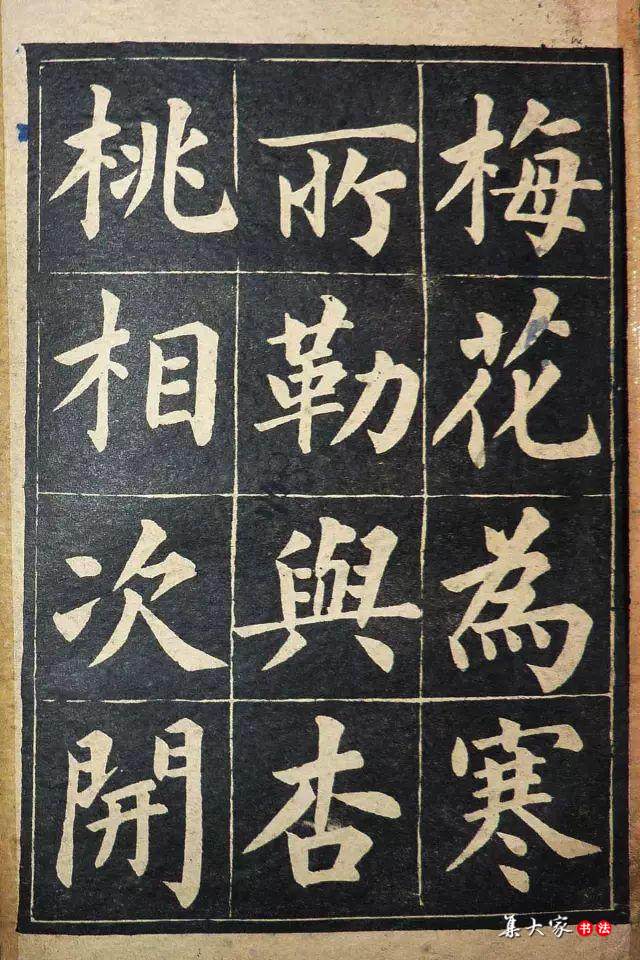 梅花為寒
所勒與杏
桃相次開
集大家書法